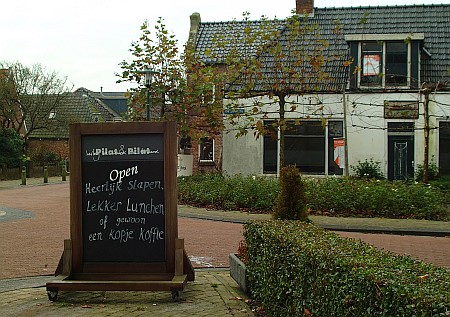 Pilat & Pilat
Open
Heerlijk slapen,
Lekker Lunchen
of gewoon
een kopje koffie